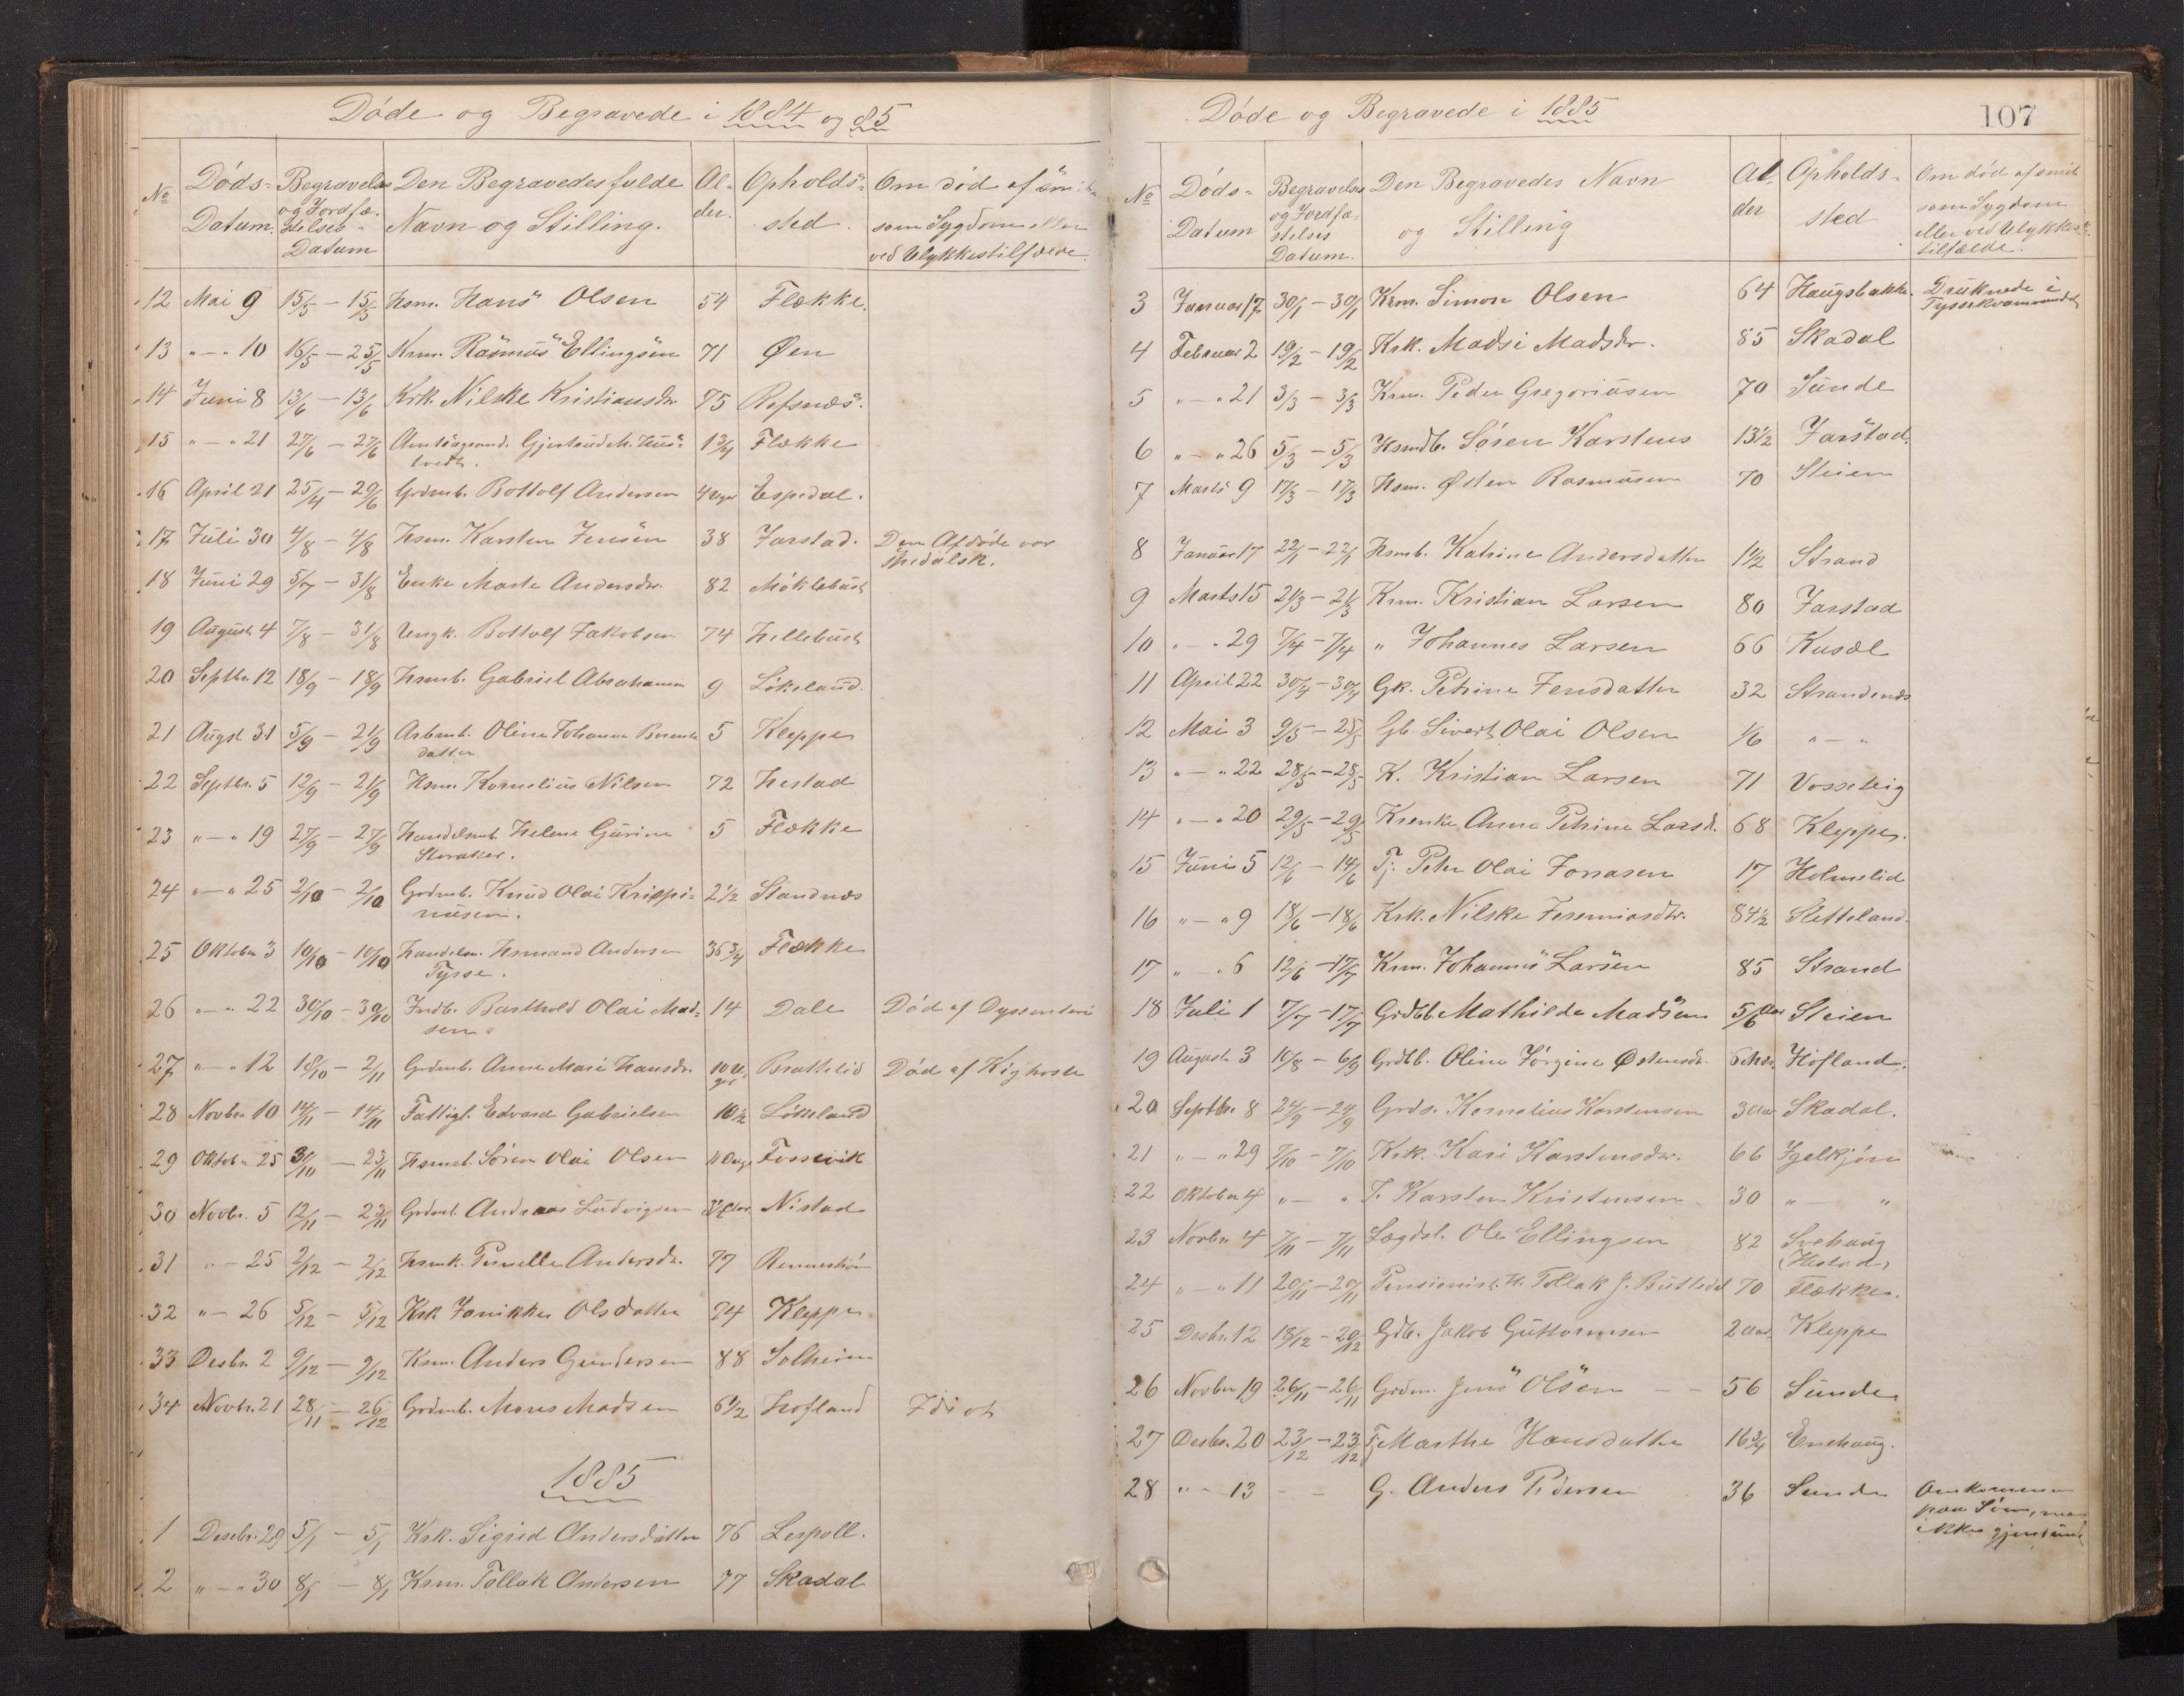 Døde og Begravede i 1884 og 85
No Døds-Datum. Begravelses og Jordfæstelses-Datum Den Begravedes fulde Navn og Stilling. Alder. Opholdssted. Om død af smitsom Sygdom eller ved Ulykkestilfælde.
12 Mai 9 15/5 – 15/5 Hsm. Hans Olsen 54 Flække.
13 " – " 10 16/5 – 25/5 Krm. Rasmus Ellingsen 71 Øen
14 Juni 8 13/6 – 13/6 Krk. Nilske Kristiansdr. 75 Refsnæs.
15 " – " 21 27/6 – 27/6 Gjertrud M. Hus-
tvedt. 1 3/4 Flække
16 April 21 25/4 – 29/6 Grdmb. Bottolf Andersen 4 Uger Espedal.
17 Juli 30 4/8 – 4/8 Hsm. Karsten Jensen 38 Jarstad. Den Afdøde var
Spedalsk.
18 Juni 29 5/7 – 31/8 Enke Marte Andersdr. 82 Møklebust
19 August 4 7/8 – 31/8 Ungk. Bottolf Jakobsen 74 Hellebust
20 Septbr. 12 18/9 – 18/9 Hsmb. Gabriel Abrahamsen 9 Løkeland.
21 Augst. 31 5/9 – 21/9 Arbmb. Oline Johanne Berents
datter 5 Kleppe
22 Septbr. 5 12/9 – 21/9 Hsm. Kornelius Nilsen 72 Hestad
23 " – " 19 27/9 – 27/9 Handelsmb. Helene Gurine
Storaker. 5 Flække
24 " – " 25 2/10 – 2/10 Grdmb. Knud Olai Krispi-
nusen. 2 1/2 Standnæs
25 Oktober 3 10/10 – 10/10 Handelsm. Hermand Andersen
Tysse. 36 3/4 Flække
26 " – " 22 30/10 – 30/10 Indb. Barthold Olai Mad-
sen 14 Dale Død af Dyssenteri
27 " – " 12 18/10 – 2/11 Grdmb. Anne Mari Hansdr. 10 U-
ger Brattelid Død af Kighoste
28 Novbr. 10 14/11 – 14/11 Fattigl. Edvard Gabrielsen 10 1/2 Løkeland
29 Oktob. 25 31/10 – 23/11 Hsmb. Søren Olai Olsen 11 Dage Fossevik
30 Novbr. 5 12/11 – 23/11 Grdmb. Andreas Ludvigsen Nistad
31 " – 25 2/12 – 2/12 Hsmk. Pernelle Andersdr. 77
32 " – 26 5/12 – 5/12 Krk Janikke Olsdatter 74 Kleppe
33 Desbr. 2 9/12 – 9/12 Krm. Anders Gundersen 88 Solheim
34 Novbr. 21 28/11 – 26/12 Grdmb. Mons Madsen 6 1/2 Hofland Idiot
1885
1 Desebr. 29 5/1 – 5/1 Krk. Sigrid Andersdatter 76 Lespoll.
2 " – " 30 8/1 – 8/1 Krm. Tollak Andersen 77 Skadal
Døde og Begravede i 1885
107
No Døds-Datum Begravelses og Jordfæstelses Datum. Den Begravedes Navn og Stilling Alder Opholdssted Om død af smitsom Sygdom eller ved Ulykkestilfælde.
3 Januar 17 30/1 – 30/1 Krm. Simon Olsen 64 Haugsbakke. Druknede i
Tyssekvamvandet
4 Februar 2 19/2 – 19/2 Krk. Madsi Madsdr. 85 Skadal
5 " – " 21 3/3 – 3/3 Krm. Peder Gregoriusen 70 Sunde
6 " – " 26 5/3 – 5/3 Hsmdb. Søren Karstens 13 1/2 Jarstad.
7 Marts 9 17/3 – 17/3 Hsm. Østen Rasmusen 70 Steien
8 Januar 17 22/1 – 22/1 Hsmb. Katrine Andersdatter 1 1/2 Strand
9 Marts 15 21/3 – 21/3 Krm. Kristian Larsen 80 Jarstad
10 " – " 29 7/4 – 7/4 " Johannes Larsen 66 Kusæl
11 April 22 30/4 – 30/4 Gk. Petrine Jensdatter 32 Strandenæs
12 Mai 3 9/5 – 25/5 Gb. Sivert Olai Olsen 1/6 " – "
13 " – " 22 28/5 – 28/5 K. Kristian Larsen 71 Vosseteig
14 " – " 20 29/5 – 29/5 Krenke Anne Petrine Larsd. 68 Kleppe.
15 Juni 5 12/6 – 14/6 Tj. Peter Olai Jonasen 17 Holmelid
16 " – " 9 18/6 – 18/6 Krk. Nilske Jeremiasdtr. 84 1/2 Sletteland.
17 " – " 6 12/6 – 17/7 Krm. Johannes Larsen 85 Strand
18 Juli 1 7/7 – 17/7 Grdbb. Mathilde Madsen 5/6 Aar Steien
19 August 3 10/8 – 6/9 Grdbb. Oline Jørgine Østensdr. 6 Mdr. Hofland.
20 Septbr. 8 24/9 – 24/9 Grds. Kornelius Karstensen 3 Aar Skadal.
21 " – " 29 7/10 – 7/10 Krk. Kari Karstensdr. 66 Igelkjøn
22 Oktober 4 " – " T. Karsten Kristensen 30 " – "
23 Novbr. 4 7/11 – 7/11 Lægdsl. Ole Ellingsen 82 Svehaug
(Hestad)
24 " – " 11 20/11 – 20/11 Pensionist. H. Tollak J. Buttedal 70 Flække.
25 Desbr. 12 18/12 – 20/12 Gdb. Jakob Guttormsen 2 Aar. Kleppe
26 Novber 19 26/11 – 26/11 Grdm. Jens Olsen – – 56 Sunde
27 Desbr. 20 23/12 – 23/12 Tj. Marthe Hansdatter 16 3/4 Enehaug.
28 " – 13 – – G. Anders Pedersen 36 Sunde Omkommen
paa Søen, men
ikke gjenfunden